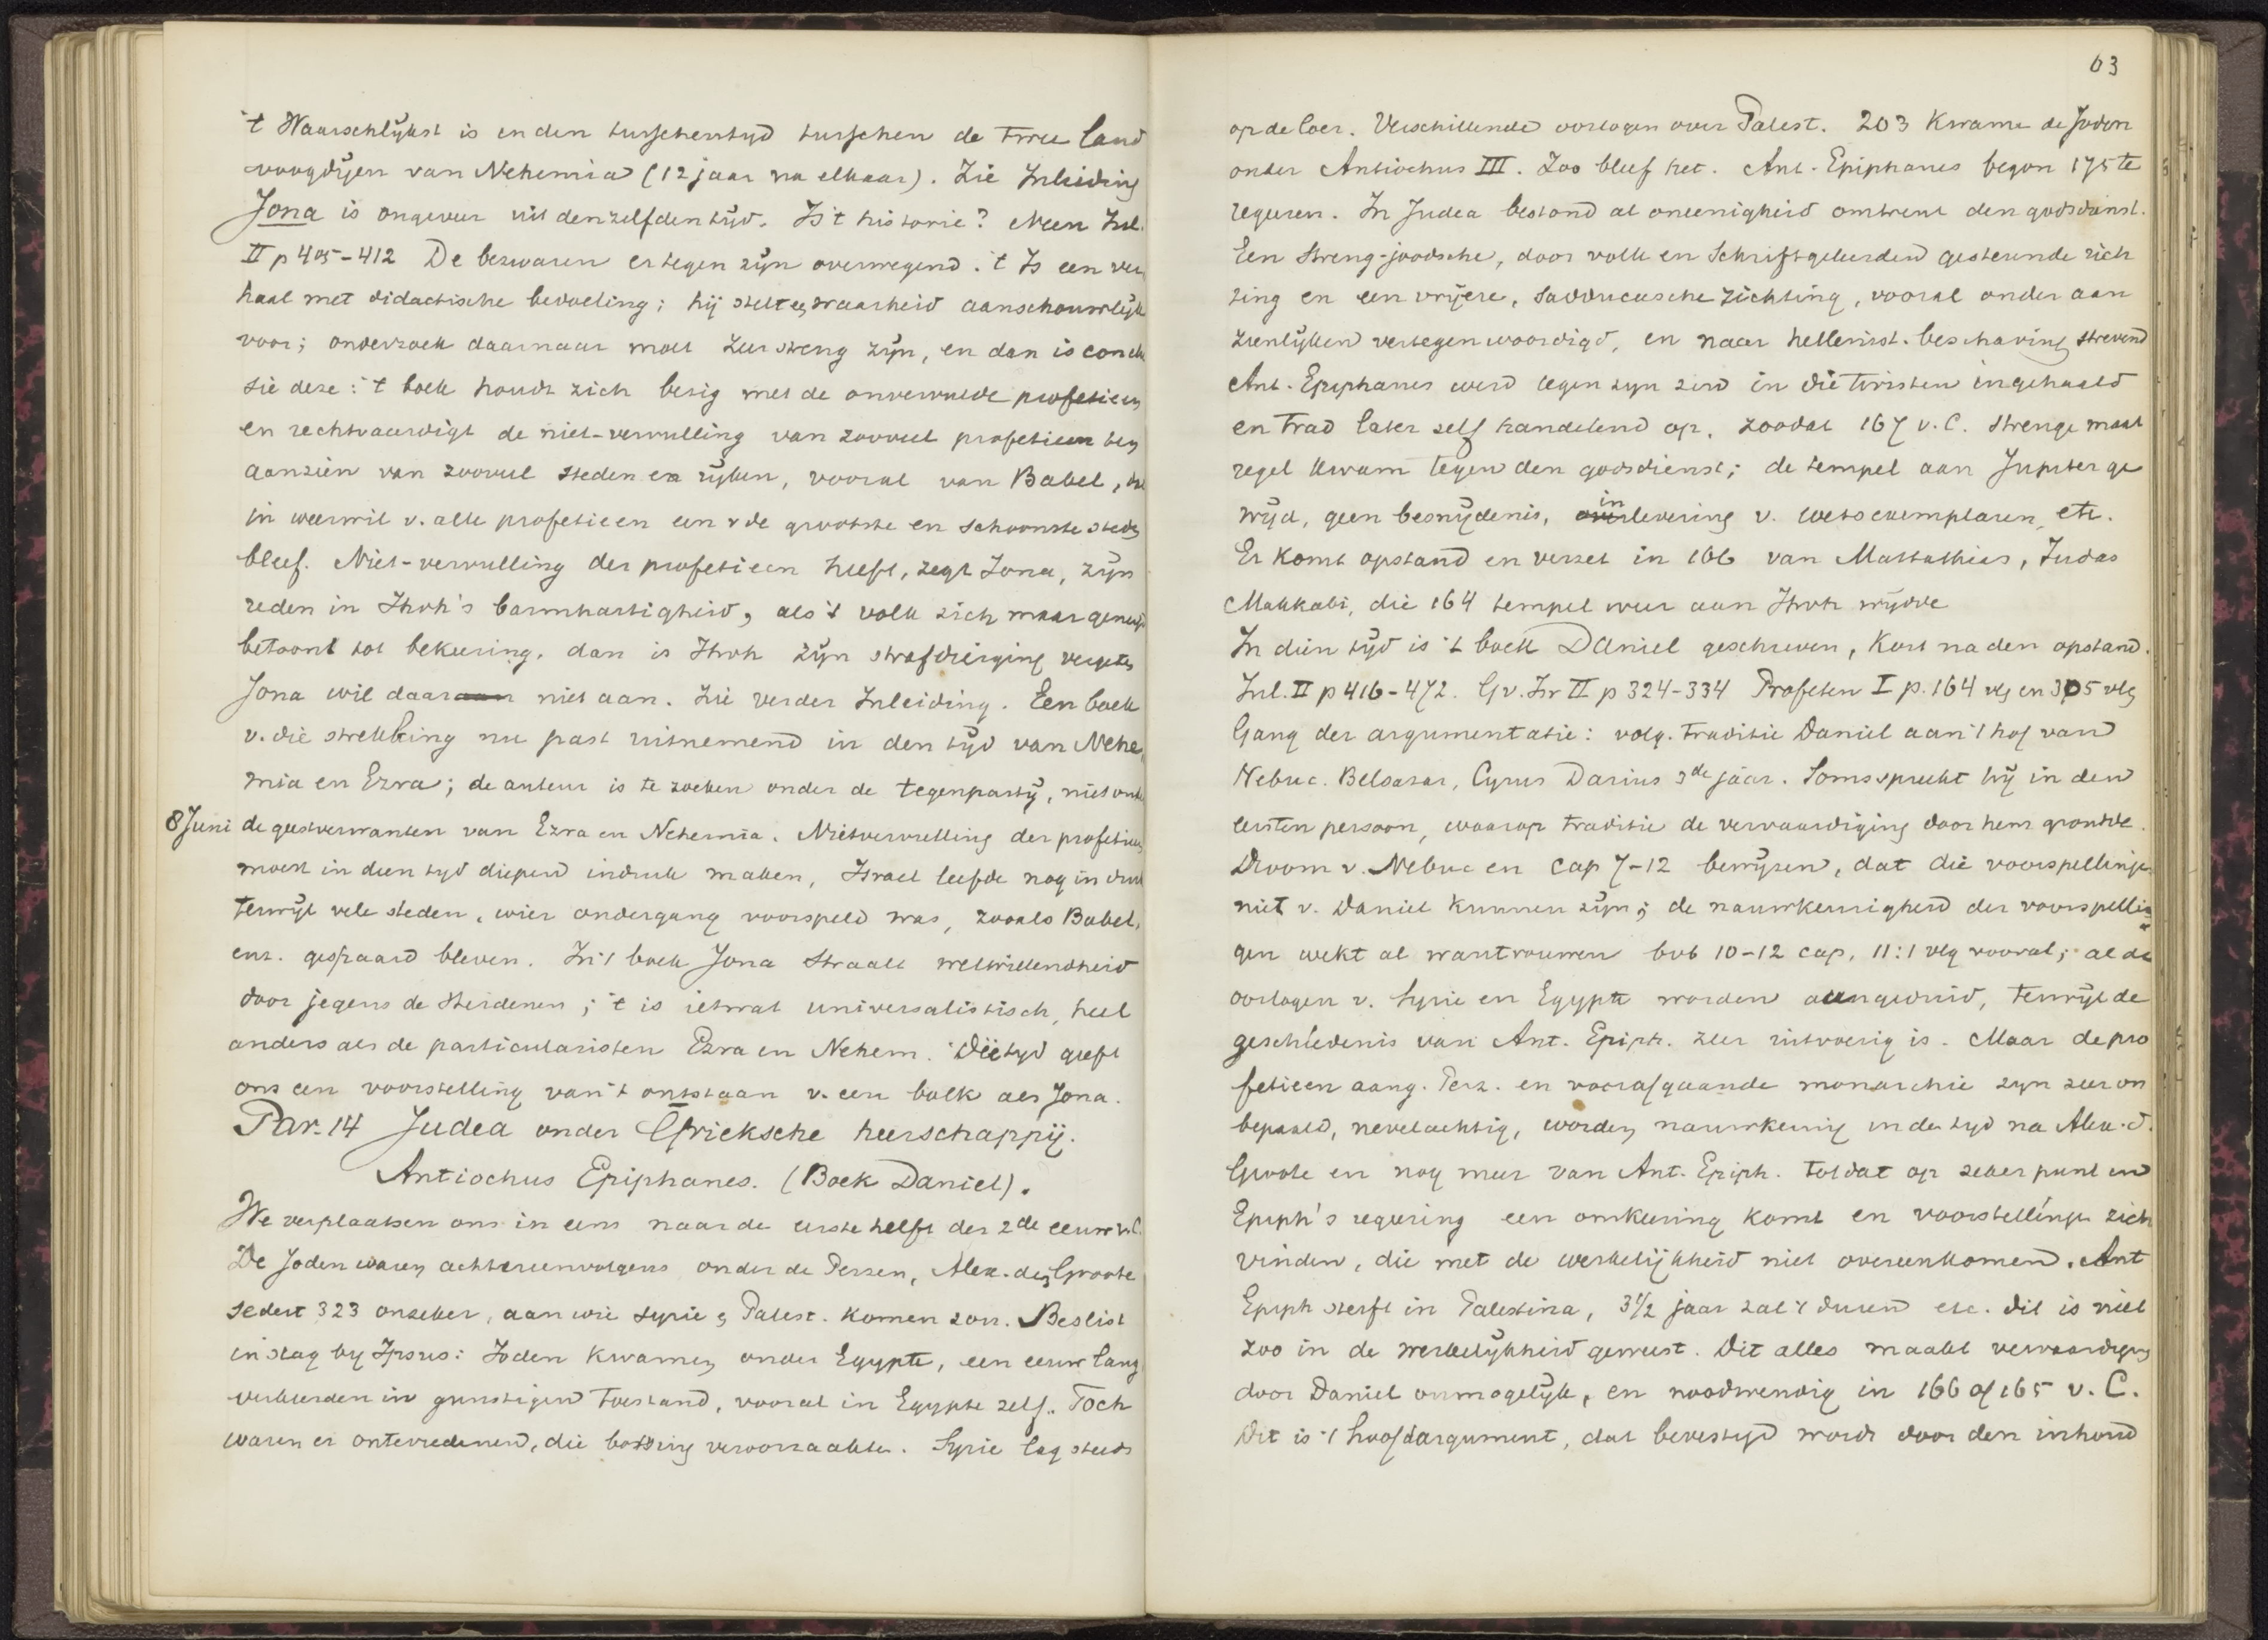 't Waarschlijkst is in den tusschentijd tusschen de twee land
voogdijen van Nehemia (12 jaar na elkaar). Zie Inleiding
Jona is ongeveer uit denzelfden tijd. Is 't historie? Neen Inl.
II p 405-412 De bezwaren ertegen zijn overwegend. 't Is een ver
haal met didactische bedoeling; hij stelt een waarheid aanschouwlijk
voor; onderzoek daarnaar moet zeer streng zijn, en dan is conclu
sie deze: 't boek houdt zich bezig met de onvervulde profetieen
en rechtvaardigt de niet-vervulling van zooveel profetieen ten
aanzien van zooveel steden en rijken, vooral van Babel, dat
in weerwil v. alle profetieen een v de grootste en schoonste steden
bleef. Niet-vervulling der profetieen heeft, zegt Jona, zijn
reden in Jhvh's barmhartigheid, als 't volk zich maar geneigd
betoont tot bekeering, dan is Jhvh zijn strafdreiging vergeten
Jona wil daaraan niet aan. Zie verder Inleiding. Een boek
v. die strekking nu past uitnemend in den tijd van Nehe
mia en Ezra; de auteur is te zoeken onder de tegenpartij, niet onder
8 Juni de geestverwanten van Ezra en Nehemia. Nietvervulling der profetieen
moest in dien tijd diepen indruk maken, Israel leefde nog in druk
terwijl vele steden, wier ondergang voorspeld was, zooals Babel,
enz. gespaard bleven. In 't boek Jona straalt welwillendheid
door jegens de Heidenen; 't is ietwat universalistisch, heel
anders als de particularisten Ezra en Nehem. Die tijd geeft
ons een voorstelling van 't ontstaan v. een boek als Jona.
Par. 14 Judea onder Grieksche heerschappij.
Antiochus Epiphanes. (Boek Daniel).
We verplaatsen ons in eens naar de eerste helft der 2de eeuw v.C.
De Joden waren achtereenvolgens onder de Perzen, Alex. den Groote
sedert 323 onzeker, aan wie Syrie en Palest. komen zou. Beslist
in slag bij Ipsus: Joden kwamen onder Egypte, een eeuw lang
verkeerden in gunstigen toestand, vooral in Egypte zelf. Toch
waren er ontevredenen, die botsing veroorzaakten. Syrie lag steeds
63
op de loer. Verschillende oorlogen over Palest. 203 kwamen de Joden
onder Antiochus III. Zoo bleef het. Ant. Epiphanes begon 175 te
regeeren. In Judea bestond al oneenigheid omtrent den godsdienst.
Een streng-joodsche, door volk en Schriftgeleerden gesteunde rich
ting en een vrijere, Sadduceesche richting, vooral onder aan
zienlijken vertegenwoordigd, en naar hellenist. beschaving strevend
Ant. Epiphanes werd tegen zijn zin in die twisten ingehaald
en trad later zelf handelend op, zoodat 167 v.C. strenge maat
regel kwam tegen den godsdienst; de tempel aan Jupiter ge
wijd, geen besnijdenis, inlevering v. wetsexemplaren, etc.
Er komt opstand en verzet in 166 van Mattathias, Judas
Makkabi, die 164 tempel weer aan Jhvh wijdde
In dien tijd is 't boek Daniel geschreven, kort na den opstand.
Inl. II p 416-472. Gv. Isr II p 324-334 Profeten I p. 164 vlg en 305 vlg
Gang der argumentatie: volg. traditie Daniel aan 't hof van
Nebuc. Belsazar, Cyrus Darius 3de jaar. Soms spreekt hij in den
eersten persoon, waarop traditie de vervaardiging door hem grondde.
Droom v. Nebuc en cap 7-12 bewijzen, dat die voorspellingen
niet v. Daniel kunnen zijn; de nauwkeurigheid der voorspellin
gen wekt al wantrouwen bvb 10-12 cap, 11:1 vlg vooral; al de
oorlogen v. Syrie en Egypte worden aangeduid, terwijl de
geschiedenis van Ant. Epiph. zeer uitvoerig is. Maar de pro
fetieen aang. Perz. en voorafgaande monarchie zijn zeer on
bepaald, nevelachtig, worden nauwkeurig in de tijd na Alex. d.
Groote en nog meer van Ant. Epiph. totdat op zeker punt in
Epiph's regeering een omkeering komt en voorstellingen zich
vinden, die met de werkelijkheid niet overeenkomen. Ant
Epiph sterft in Palestina, 3 1/2 jaar zal 't duren etc. dit is niet
zoo in de werkelijkheid geweest. Dit alles maakt vervaardiging
door Daniel onmogelijk, en noodwendig in 166 of 165 v. C.
Dit is 't hoofdargument, dat bevestigd wordt door den inhoud